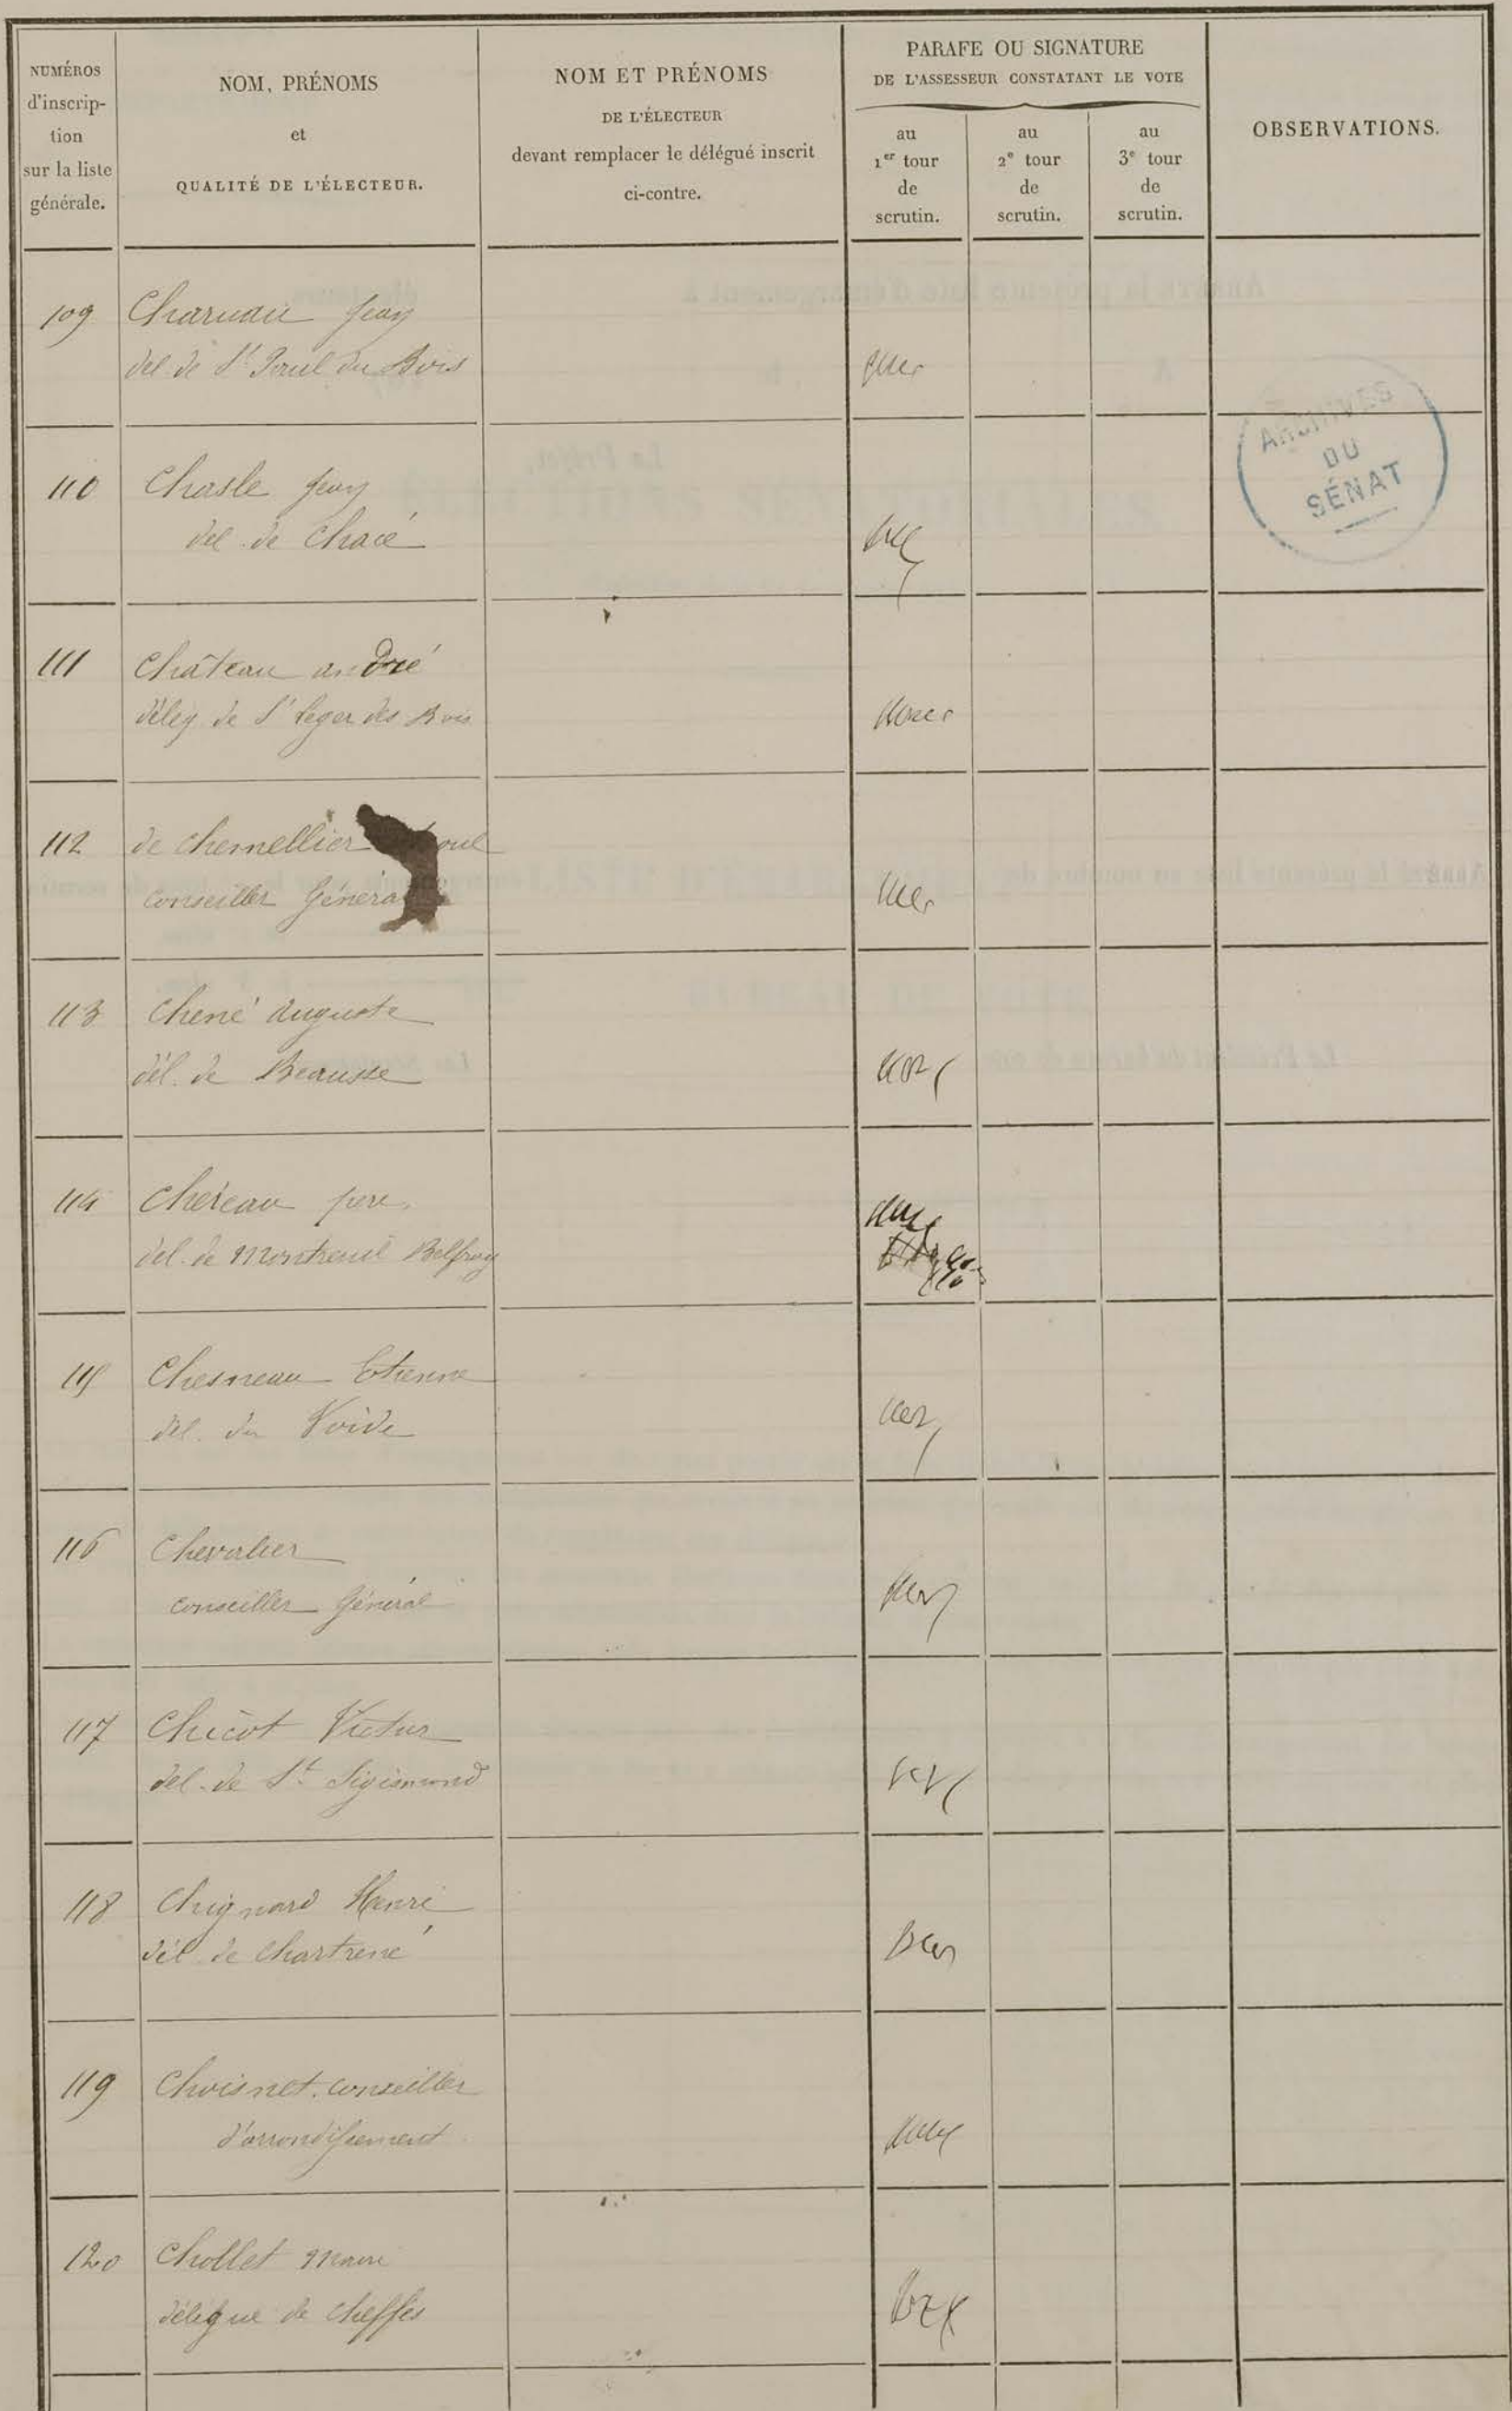 NUMÉROS
d'inscrip-
tion
sur la liste
générale.
NOM, PRÉNOMS
et
QUALITÉ DE L'ÉLECTEUR.
NOM ET PRÉNOMS
DE L'ÉLECTEUR
devant remplacer le délégué inscrit
ci-contre.
PARAFE OU SIGNATURE
DE L'ASSESSEUR CONSTATANT LE VOTE
au
1er tour
de
scrutin.
au
2e tour
de
scrutin.
au
3e tour
de
scrutin.
OBSERVATIONS.
109 Charuau Jean
del. de St Paul du Bois
110 Chasle Jean
del. de Chacé
ARCHIVES
DU
SÉNAT
111 Château andré
déleg. de St Leger des Bois
112 de Chemellier
Conseiller Général
113 Chené Auguste
dél. de Beausse
114 Chereau père
del. de Montreuil Belfroy
115 Chesneau Etienne
del. du Voide
116 Chevalier
conseiller Général
117 Chicot Victor
del. de St Sigismond
118 Chignard Henri
dél. de Chartrené
119 Choisnet. conseiller
d'arrondissement
120 Chollet maire
délégué de Cheffes